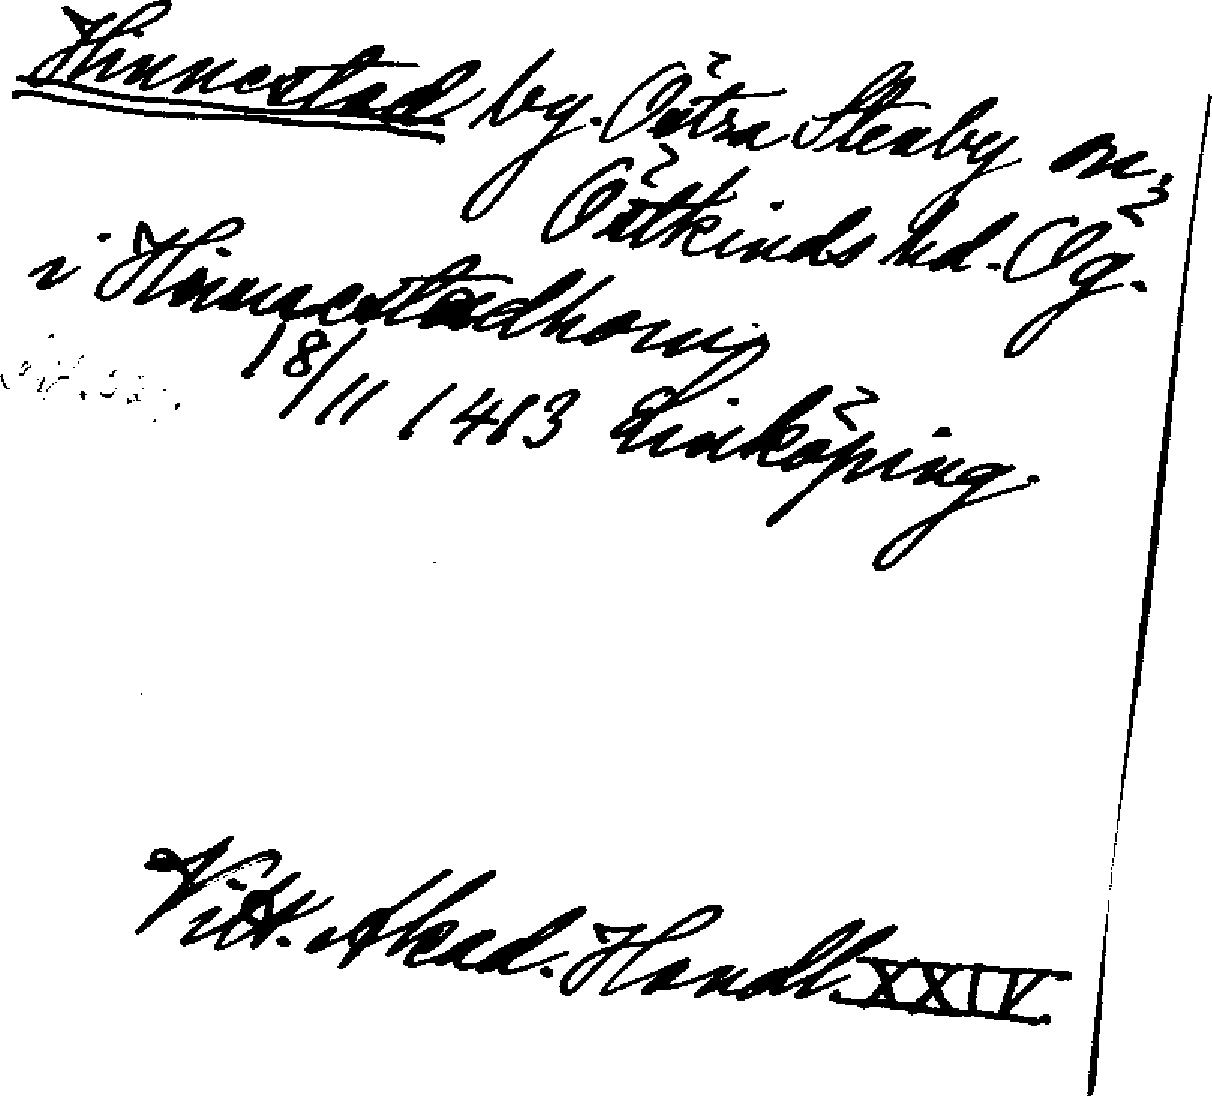 Hinnestad by. Östra Stenby sn,
Östkinds hd. Ög.
i Hinnestadhom
18/11 1413 Linköping.
Vitt. Akad. Handl. XXIV